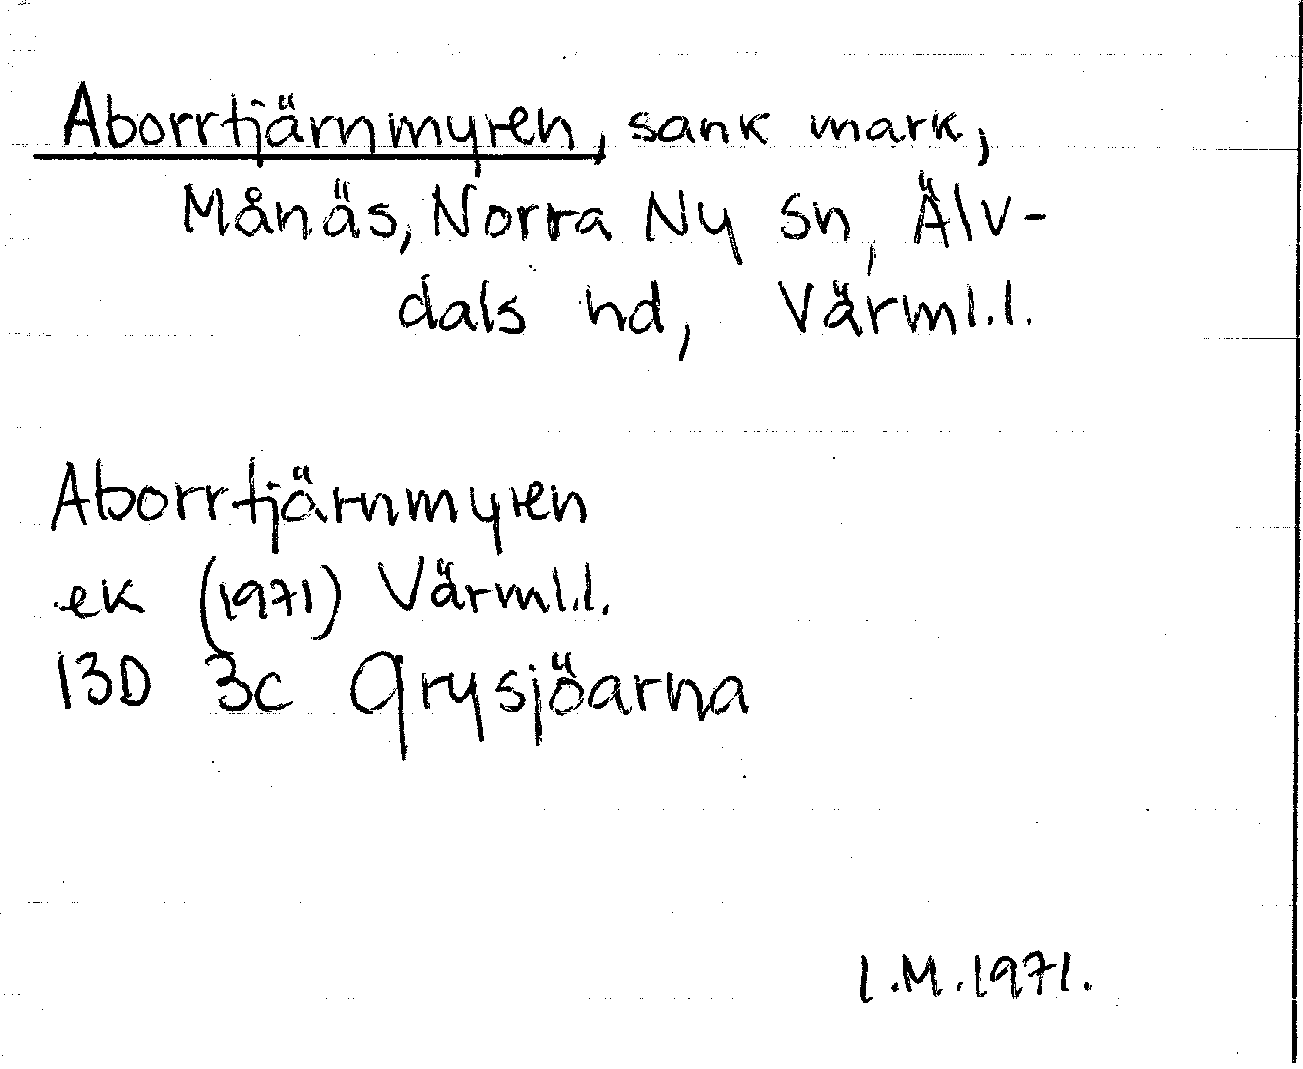 Aborrtjärnmyren, sank mark,
Månäs, Norra Ny sn, Älv-
dals hd, Värml.l.
Aborrtjärnmyren
ek (1971) Värml.l.
13D 3c Grysjöarna
I.M.1971.